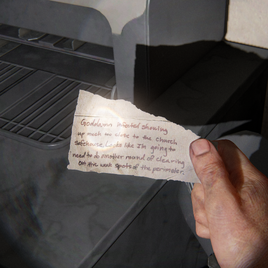 Goddamn infested showing
up much too close to the Church
safehouse. Looks like I'm going to
need to do another round of clearing
out the weak spots of the perimeter.